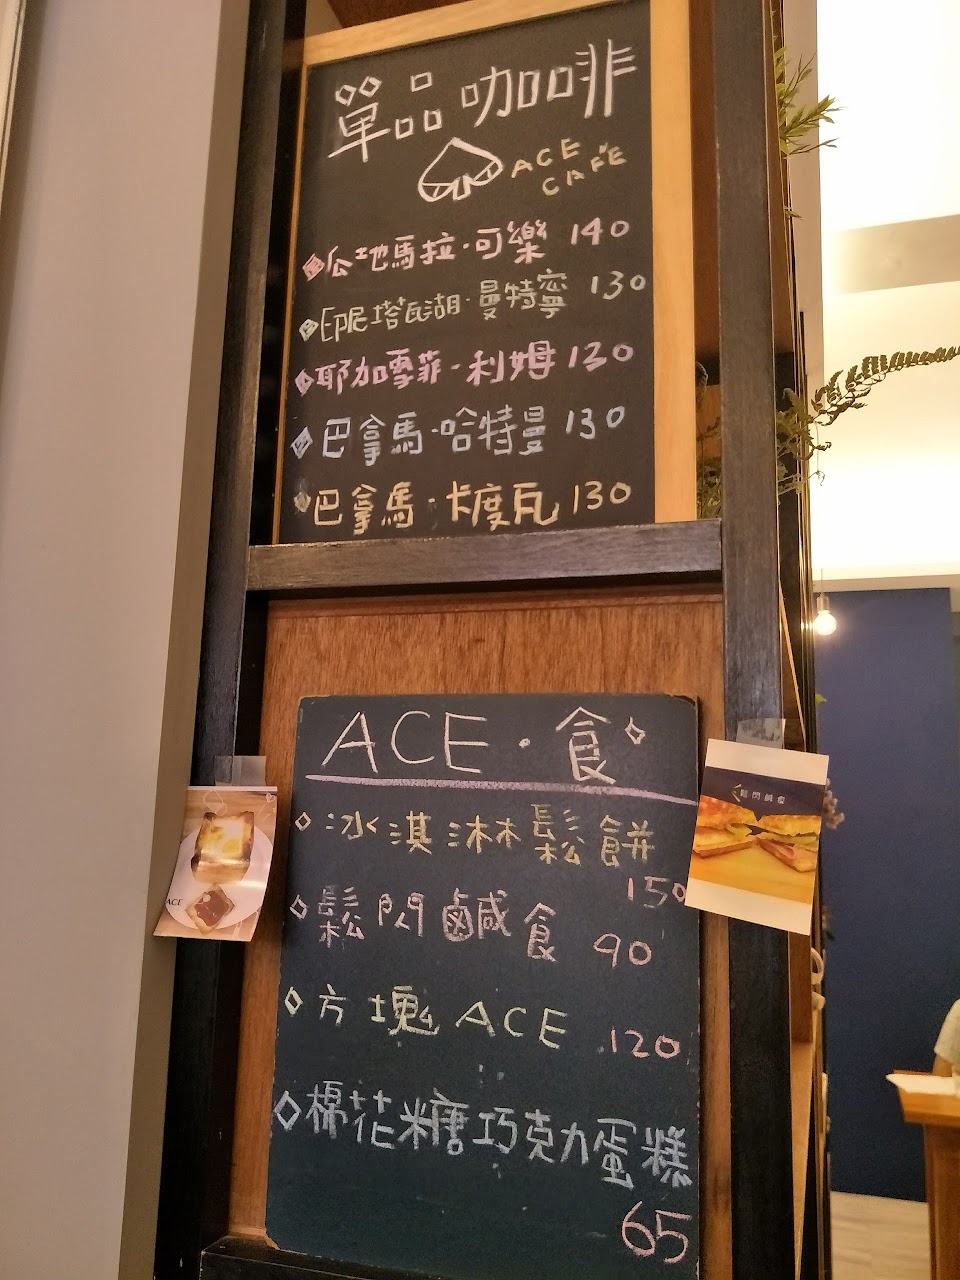 單品咖啡
ACE
CAFE
瓜地馬拉·可樂 140
印尼塔瓦湖·曼特寧 130
耶加雪菲·利姆 130
巴拿馬·哈特曼 130
巴拿馬·卡度瓦 130
ACE·食
冰淇淋鬆餅
150
鬆閃鹹食 90
方塊ACE 120
棉花糖巧克力蛋糕
65
ACE